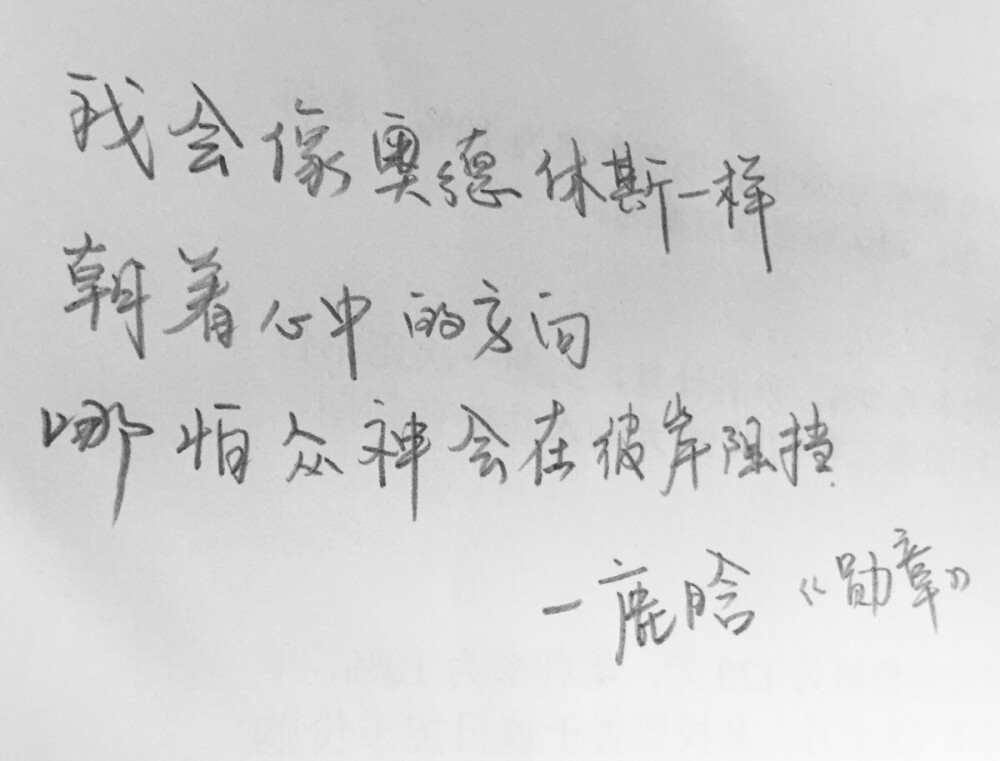 我会像奥德休斯一样
朝着心中的方向
哪怕众神会在彼岸阻挡
—鹿晗《勋章》